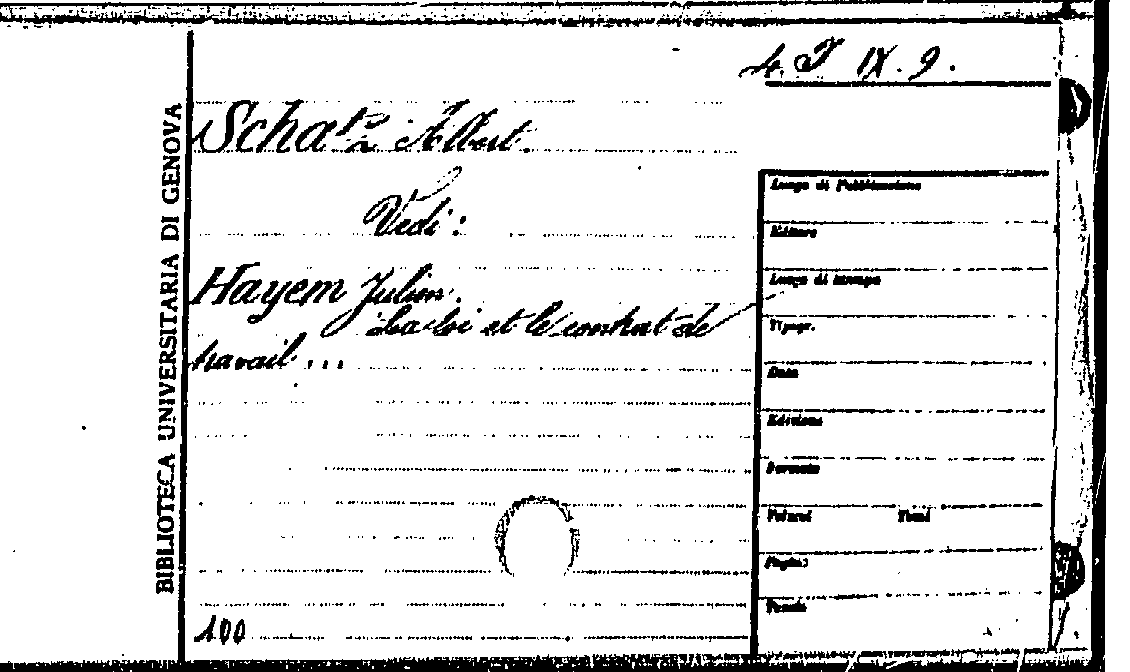 4. T IX. 9.
Schatz Albert.
Vedi:
Hayem Julien.
La loi et le contrat de
travail ...
100
BIBLIOTECA UNIVERSITARIA DI GENOVA
Luogo di Pubblicazione
Editore
Luogo di stampa
Tipogr.
Data
Edizione
Formato
Volumi Tomi
Pagine
Tavole